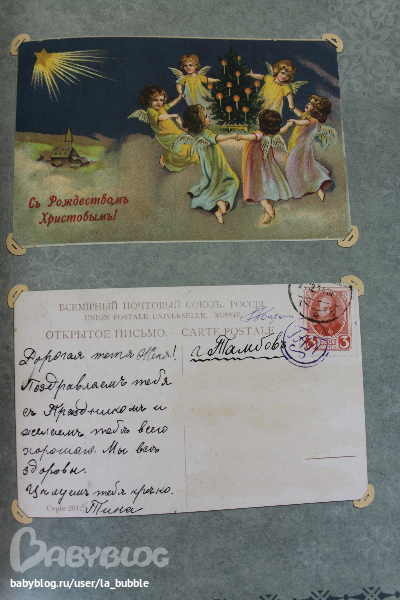 Съ Рождествомъ
Христовымъ!
ВСЕМIРНЫЙ ПОЧТОВЫЙ СОЮЗЪ. РОССIЯ.
UNION POSTALE UNIVERSELLE. RUSSIE.
ОТКРЫТОЕ ПИСЬМО. — CARTE POSTALE
Дорогая тетя Женя!
г. Тамбовъ
Поздравляемъ тебя
съ Праздникомъ и
желаемъ тебѣ всего
хорошаго. Мы всѣ
здоровы.
Цѣлуемъ тебя крѣпко.
Тина
Серія 201,
3 3
BABYBLOG
babyblog.ru/user/la_bubble